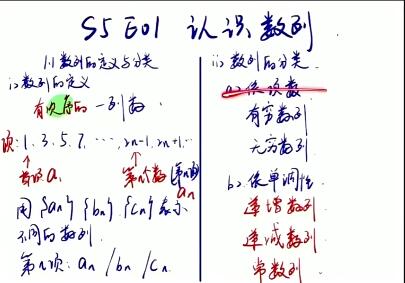 S5 E01 认识数列
1.1 数列的定义与分类
i> 数列的定义
有次序的一列数
项: 1, 3, 5, 7, ..., 2n-1, 2n+1, ...
首项 a₁ 第n个数 (第n项)
aₙ
用 {aₙ} {bₙ} {cₙ} 表示
不同的数列
第n项: aₙ / bₙ / cₙ
ii> 数列的分类
a> 依项数
有穷数列
无穷数列
b> 依单调性
递增数列
递减数列
常数列